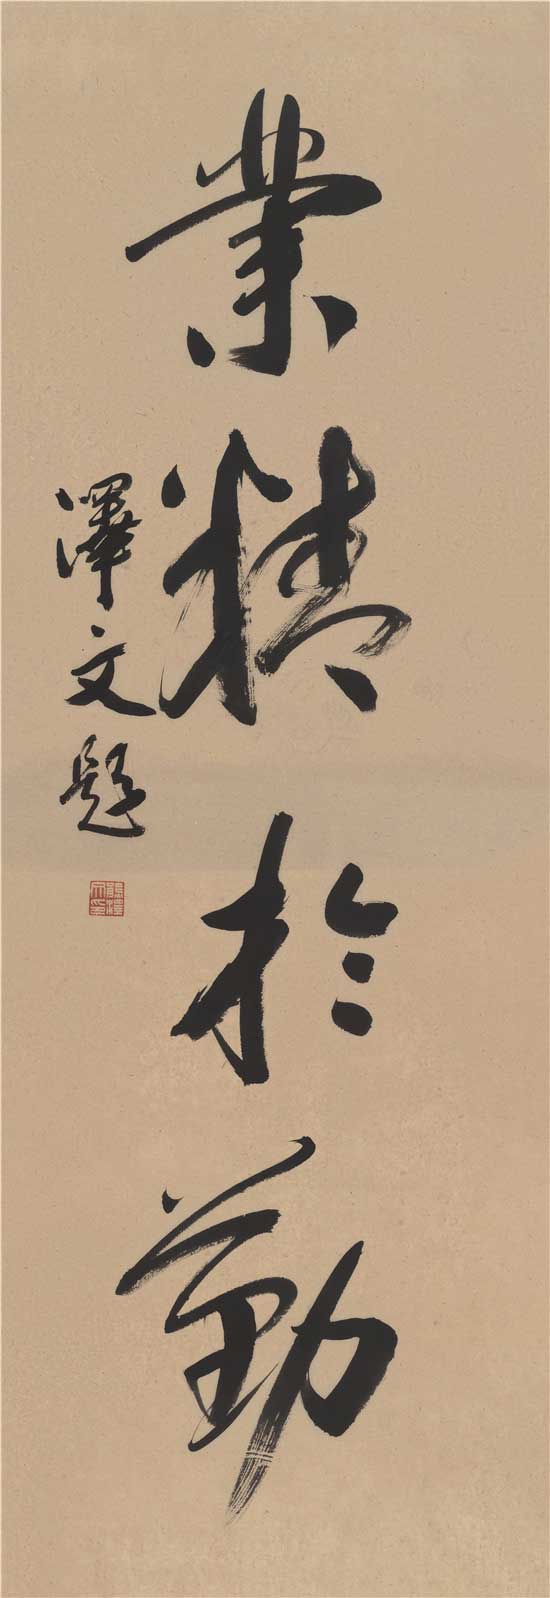 業精於勤
澤文題